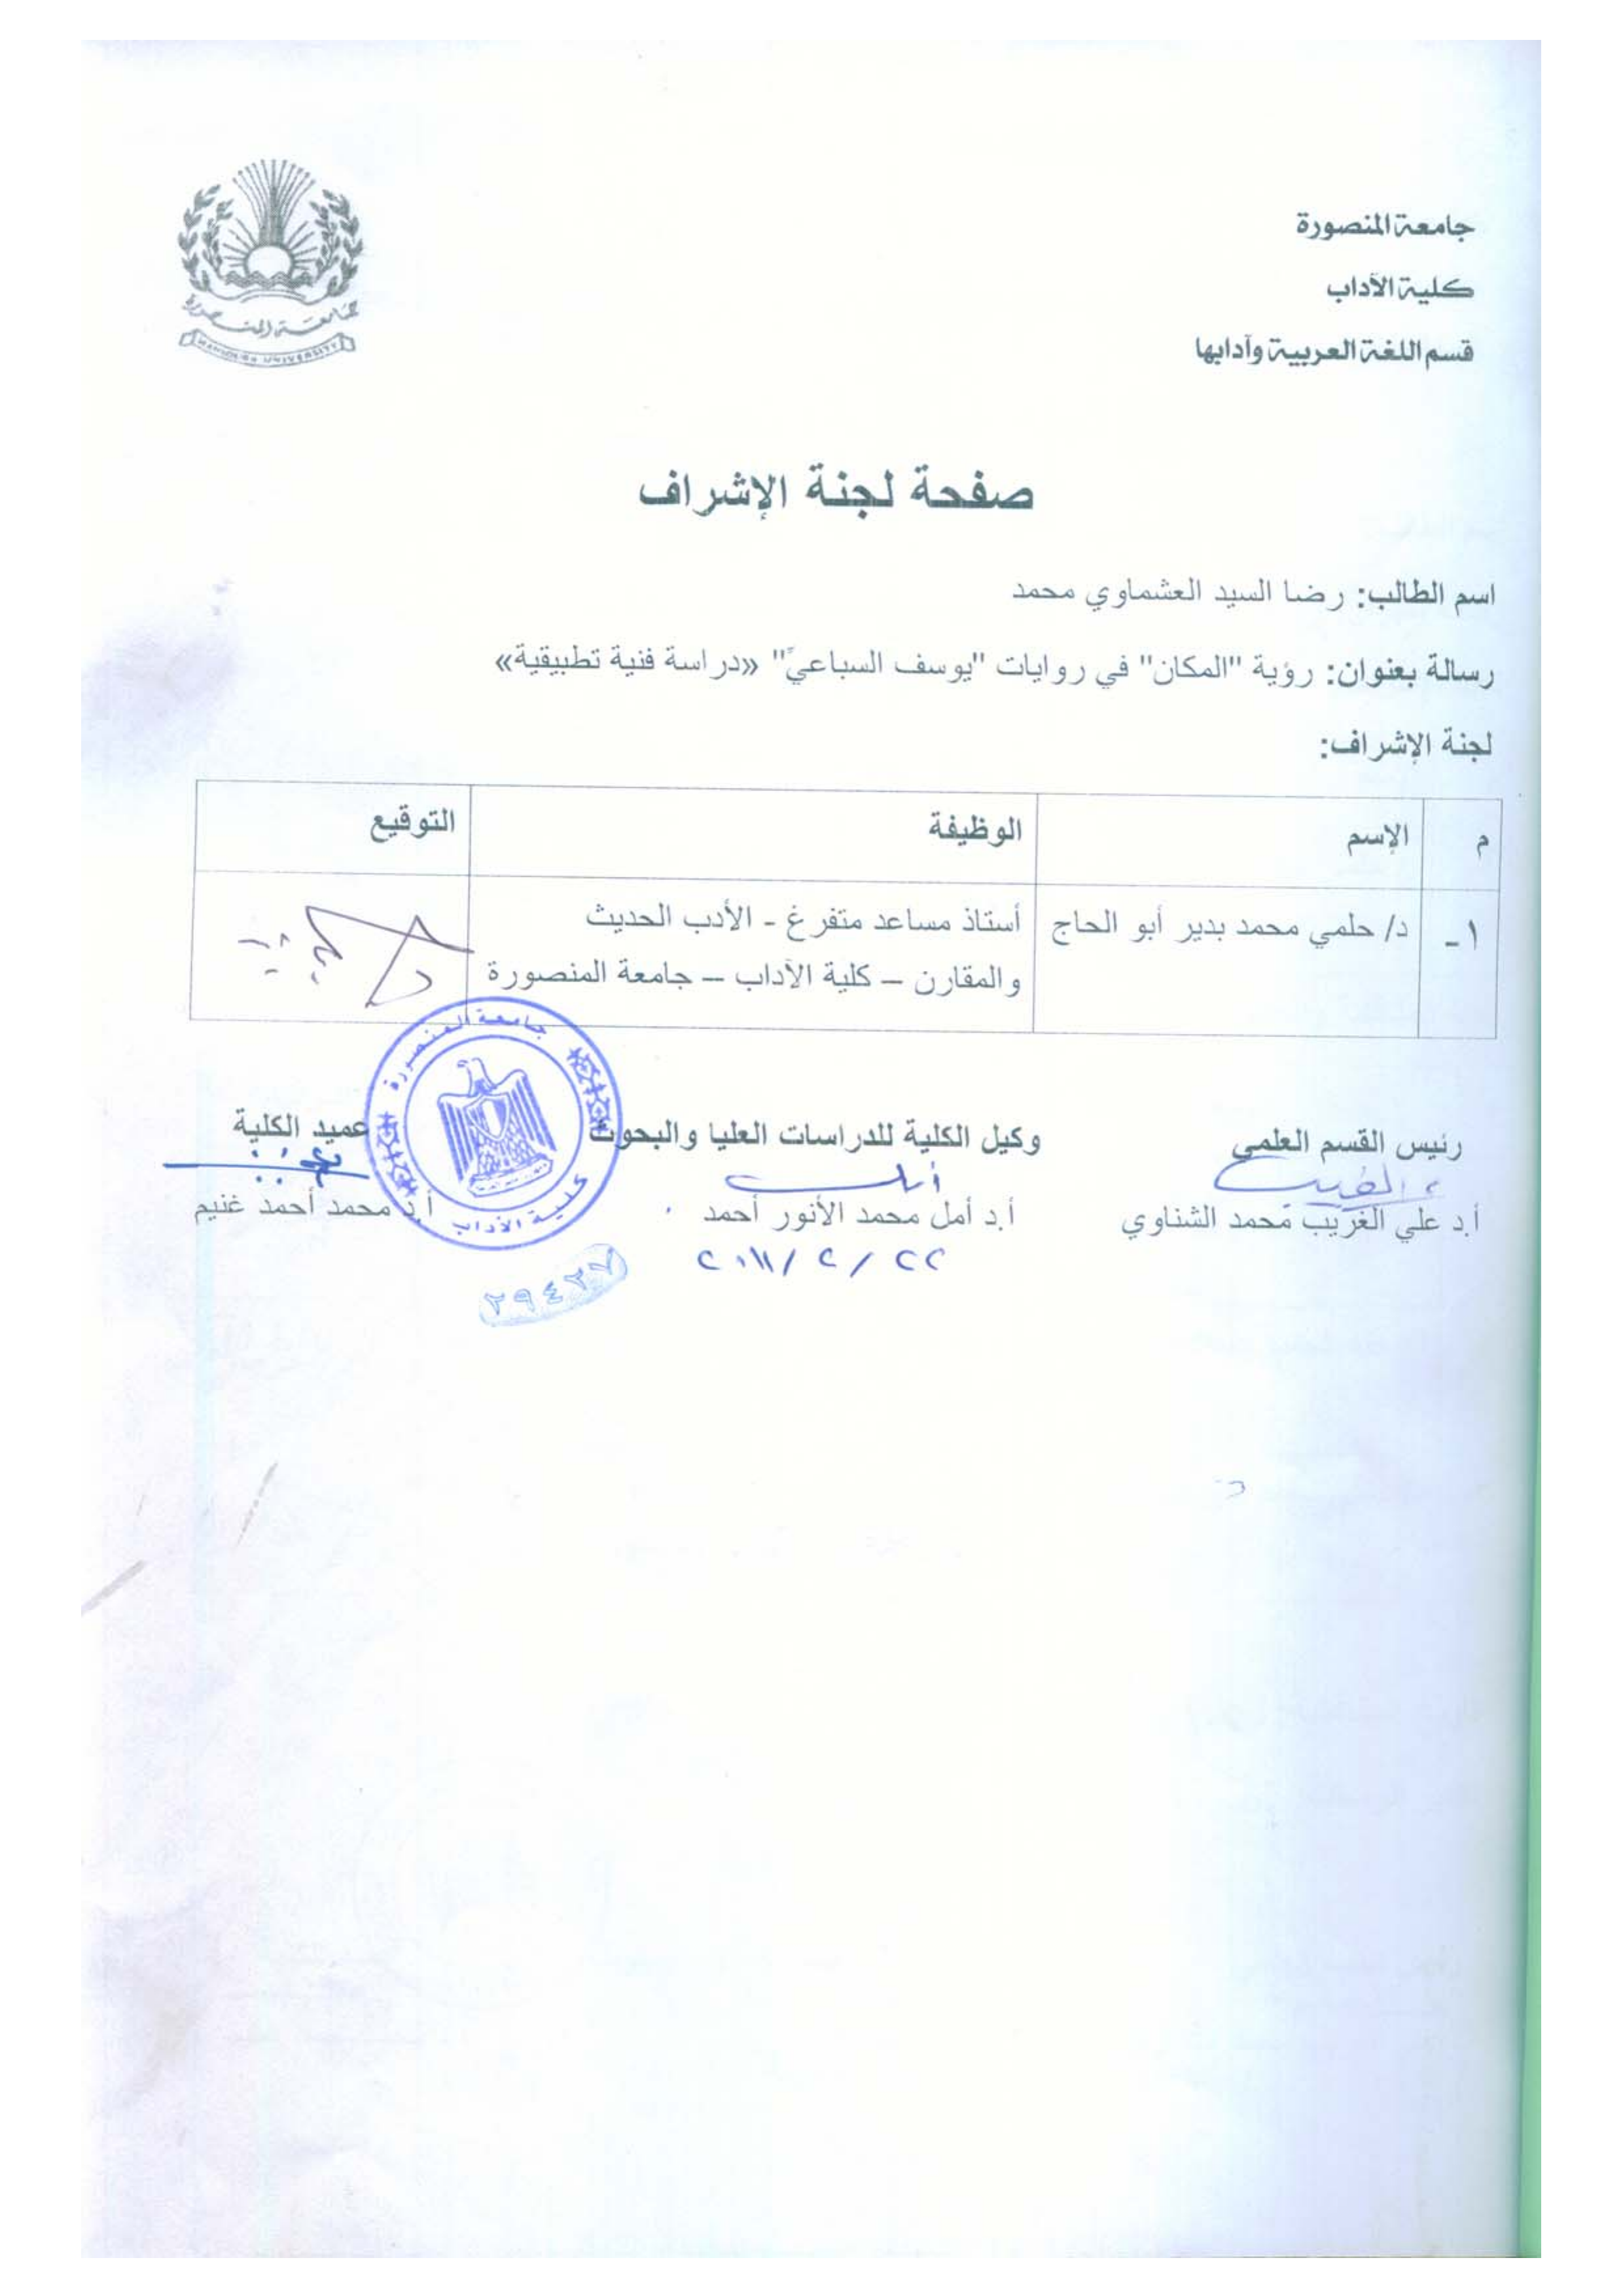 جامعة المنصورة
كلية الآداب
قسم اللغة العربية وآدابها
جامعة المنصورة
MANSOURA UNIVERSITY
صفحة لجنة الإشراف
اسم الطالب: رضا السيد العشماوي محمد
رسالة بعنوان: رؤية "المكان" في روايات "يوسف السباعيّ" «دراسة فنية تطبيقية»
لجنة الإشراف:
م الإسم الوظيفة التوقيع
١- د/ حلمي محمد بدير أبو الحاج أستاذ مساعد متفرغ - الأدب الحديث
والمقارن – كلية الآداب – جامعة المنصورة
جامعة المنصورة
كلية الآداب
رئيس القسم العلمي وكيل الكلية للدراسات العليا والبحوث عميد الكلية
أ.د علي الغريب محمد الشناوي أ.د أمل محمد الأنور أحمد أ.د محمد أحمد غنيم
٢٢ / ٢ / ٢٠١١
٢٩٤٢٧